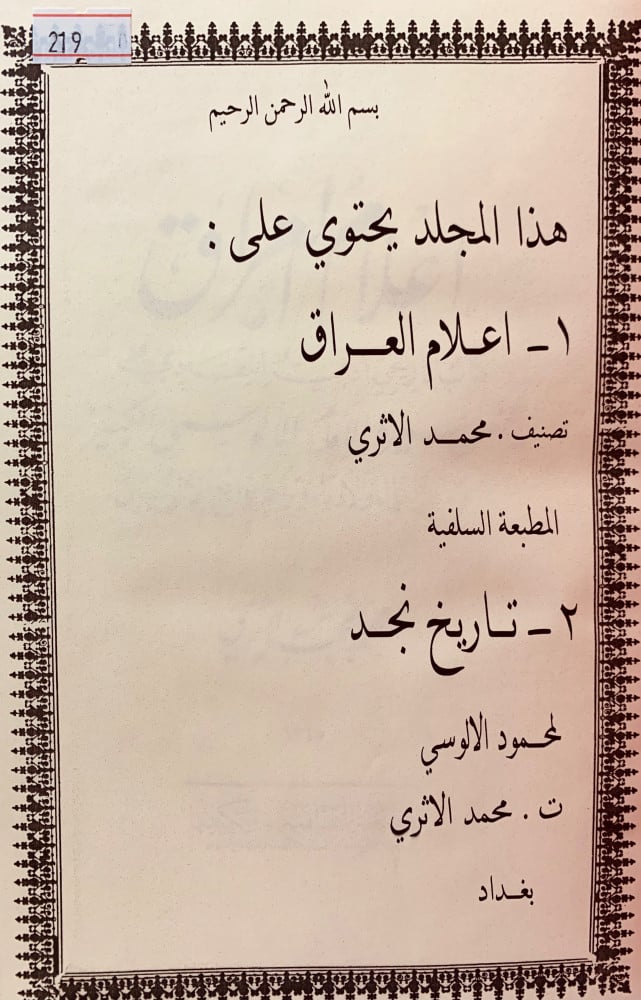 219
بسم الله الرحمن الرحيم
هذا المجلد يحتوي على :
١ - اعلام العراق
تصنيف . محمد الاثري
المطبعة السلفية
٢ - تاريخ نجد
لمحمود الالوسي
ت . محمد الاثري
بغداد